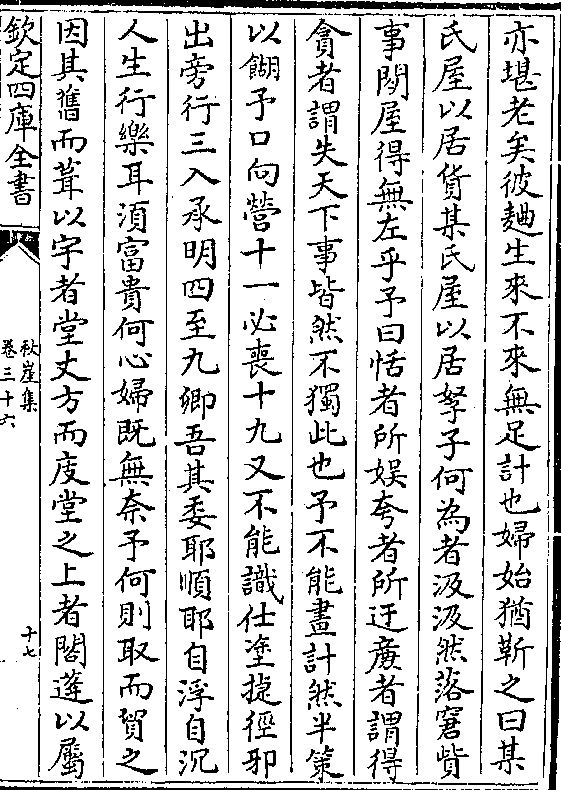 亦堪老矣彼麯生來不來無足計也婦始猶靳之曰某
氏屋以居貨某氏屋以居孥子何為者汲汲然落窘貲
事閱屋得無左乎予曰恬者所娯夸者所迂廉者謂得
貪者謂失天下事皆然不獨此也予不能畫計然半策
以餬予口向營十一必喪十九又不能識仕塗捷徑邪
出旁行三入承明四至九卿吾其委耶順耶自浮自沉
人生行樂耳須富貴何心婦既無奈予何則取而貿之
因其舊而葺以宇者堂丈方而庋堂之上者閣蓬以屬
欽定四庫全書
秋崖集
卷三十六
十七